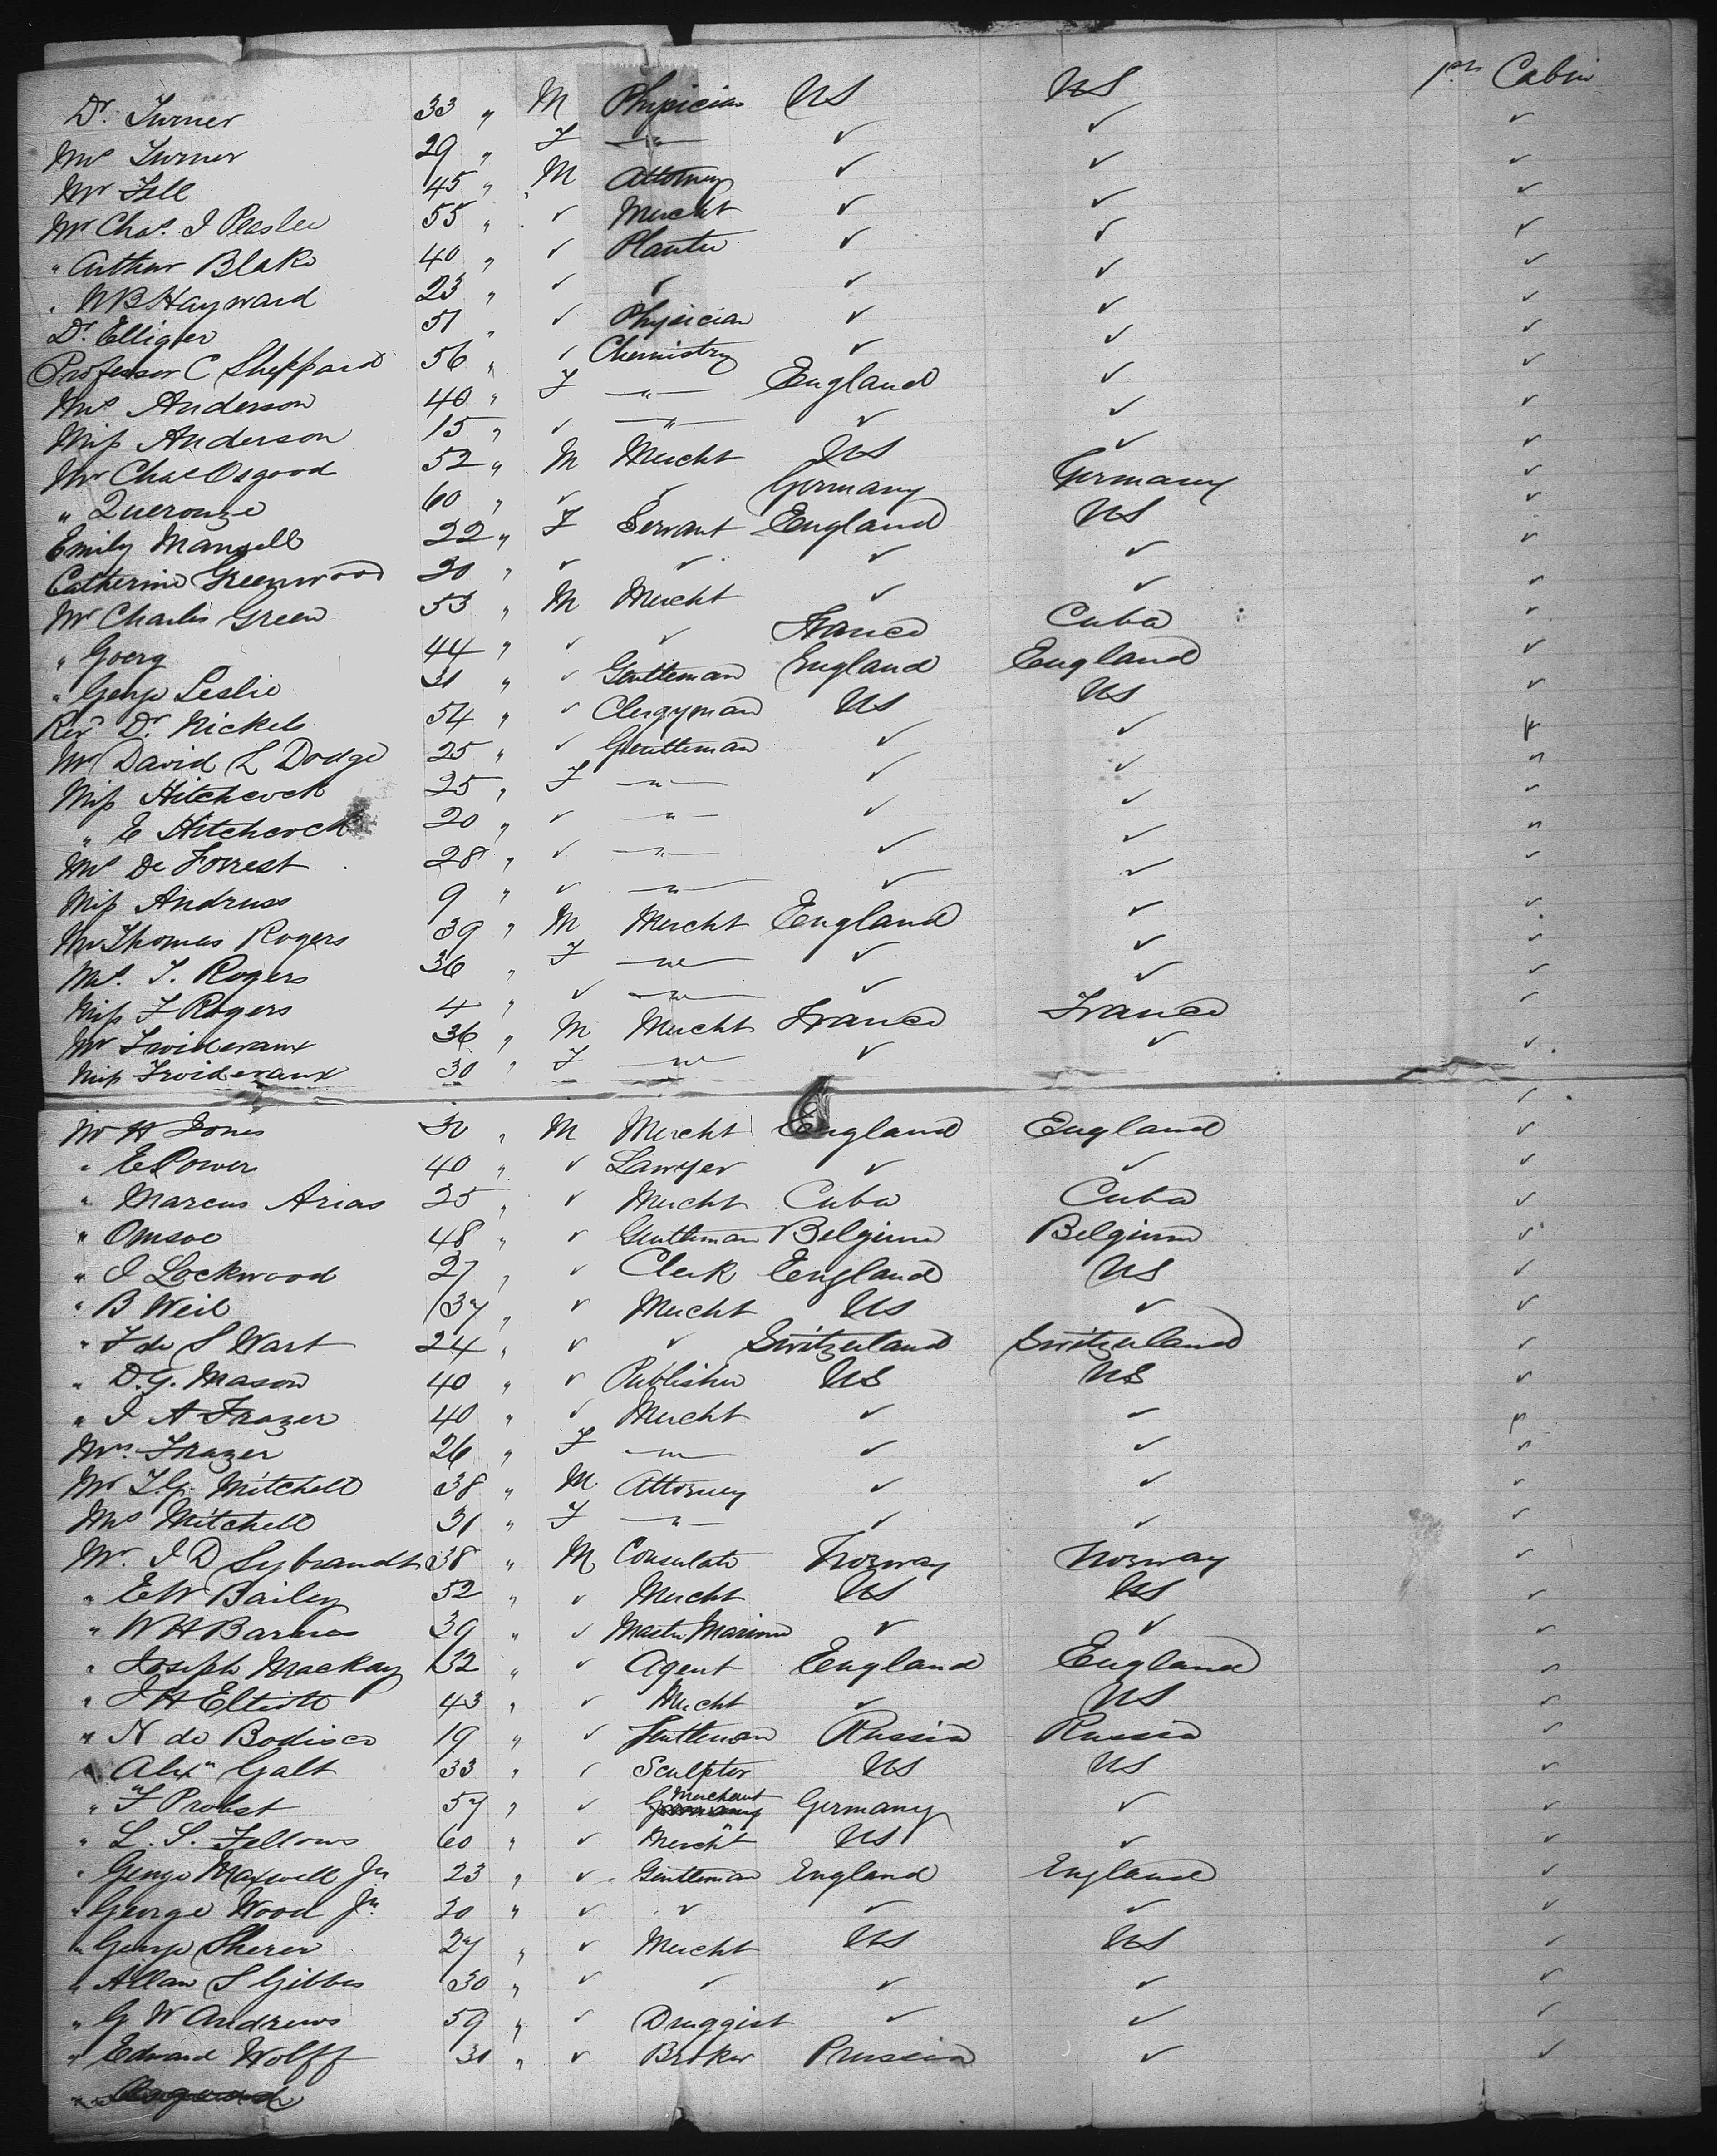 Dr. Turner 33 " M Physician US US 1st Cabin
Mrs Turner 29 " F —"— ✓ ✓ ✓
Mr Fell 45 " M Attorney ✓ ✓ ✓
Mr Chas. J Peaslee 55 " ✓ Mercht ✓ ✓ ✓
" Arthur Blake 40 " ✓ Planter ✓ ✓ ✓
" W B Hayward 23 " ✓ ✓ ✓ ✓ ✓
Dr. Elligier 51 " ✓ Physician ✓ ✓ ✓
Professor C Sheppard 56 " ✓ Chemistry ✓ ✓ ✓
Mrs Anderson 40 " F —"— England ✓ ✓
Miss Anderson 15 " ✓ —"— ✓ ✓ ✓
Mr Chas Osgood 52 " M Mercht US ✓ ✓
" Querouze 60 " ✓ ✓ Germany Germany ✓
Emily Mansell 22 " F Servant England US ✓
Catherine Greenwood 20 " ✓ ✓ ✓ ✓ ✓
Mr Charles Green 53 " M Mercht ✓ ✓ ✓
" Goerg 44 " ✓ ✓ France Cuba ✓
" George Leslie 31 " ✓ Gentleman England England ✓
Revd Dr. Nickels 54 " ✓ Clergyman US US ✓
Mr David L Dodge 25 " ✓ Gentleman ✓ ✓ ✓
Miss Hitchcock 25 " F —"— ✓ ✓ "
" E Hitchcock 20 " ✓ —"— ✓ ✓ ✓
Mrs De Forrest 28 " ✓ —"— ✓ ✓ "
Miss Andruss 9 " ✓ —"— ✓ ✓ ✓
Mr Thomas Rogers 39 " M Mercht England ✓ ✓
Mrs. T. Rogers 36 " F —"— ✓ ✓ ✓
Miss F Rogers 4 " ✓ —"— ✓ ✓ ✓
Mr Froidevaux 36 " M Mercht France France ✓
Miss Froidevaux 30 " F —"— ✓ ✓ ✓
Mr H Jones 30 " M Mercht England England ✓
" E Power 40 " ✓ Lawyer ✓ ✓ ✓
" Marcus Arias 25 " ✓ Mercht Cuba Cuba ✓
" Omsoe 48 " ✓ Gentleman Belgium Belgium ✓
" J Lockwood 27 " ✓ Clerk England US ✓
" B Weil 37 " ✓ Mercht US ✓ ✓
" F de S Wart 24 " ✓ ✓ Switzerland Switzerland ✓
" D. G. Mason 40 " ✓ Publisher US US ✓
" J A Frazer 40 " ✓ Mercht ✓ ✓ ✓
Mrs Frazer 26 " F —"— ✓ ✓ ✓
Mr T. G. Mitchell 38 " M Attorney ✓ ✓ ✓
Mrs Mitchell 31 " F —"— ✓ ✓ ✓
Mr. J D Sybrandt 38 " M Consulate Norway Norway ✓
" E W Bailey 52 " ✓ Mercht US US ✓
" W H Barnes 39 " ✓ Master Mariner ✓ ✓ ✓
" Joseph Mackay 32 " ✓ Agent England England ✓
" J H Elliott 43 " ✓ Mercht ✓ US ✓
" N de Bodisco 19 " ✓ Gentleman Russia Russia ✓
" Alexr Galt 33 " ✓ Sculptor US US ✓
" F Probst 57 " ✓ Merchant Germany ✓ ✓
" L. S. Fellows 60 " ✓ Mercht US ✓ ✓
" George Maxwell Jr 23 " ✓ Gentleman England England ✓
" George Wood Jr. 30 " ✓ ✓ ✓ ✓ ✓
" George Sherer 27 " ✓ Mercht US US ✓
" Allan S Gibbes 30 " ✓ ✓ ✓ ✓ ✓
" G W Andrews 59 " ✓ Druggist ✓ ✓ ✓
" Edward Wolff 31 " ✓ Broker Prussia ✓ ✓